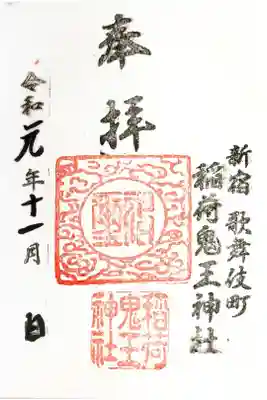 新宿 歌舞伎町
稲荷鬼王神社
奉拝
稲荷
鬼王
神社
令和元年十一月 日